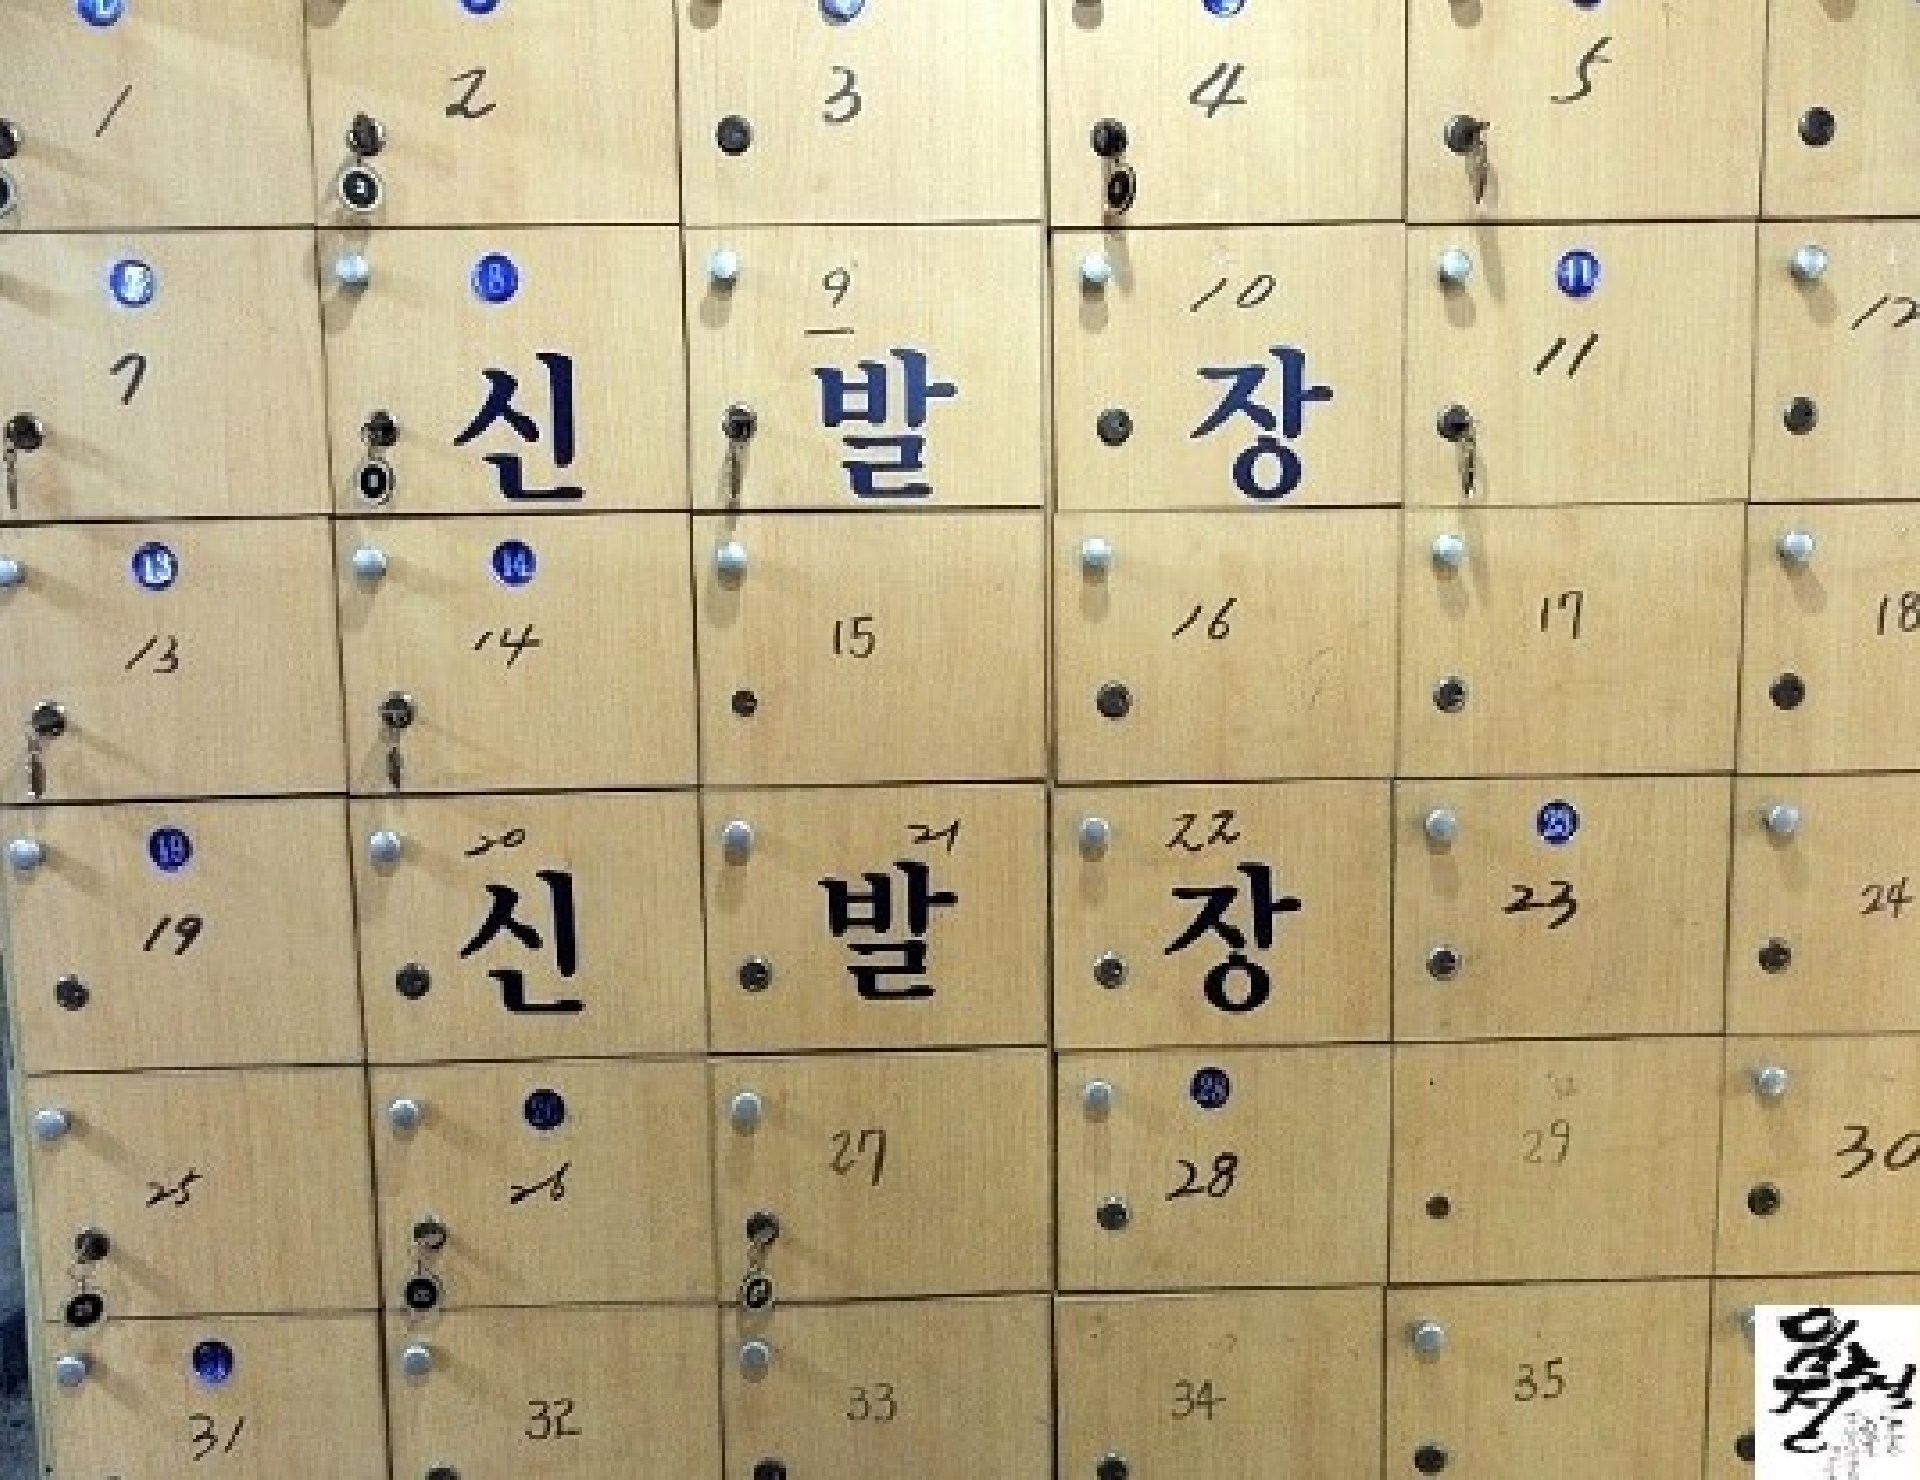 1 2 3 4 5
7 8 9 10 11 11 12
7 신 발 장
13 14
13 14 15 16 17 18
19 20 21 22 23
19 신 발 장 23 24
26 28
25 26 27 28 29 30
31
31 32 33 34 35